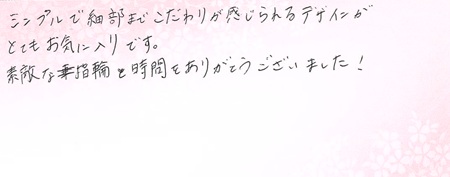 シンプルで細部までこだわりが感じられるデザインが
とてもお気に入りです。
素敵な指輪と時間をありがとうございました!